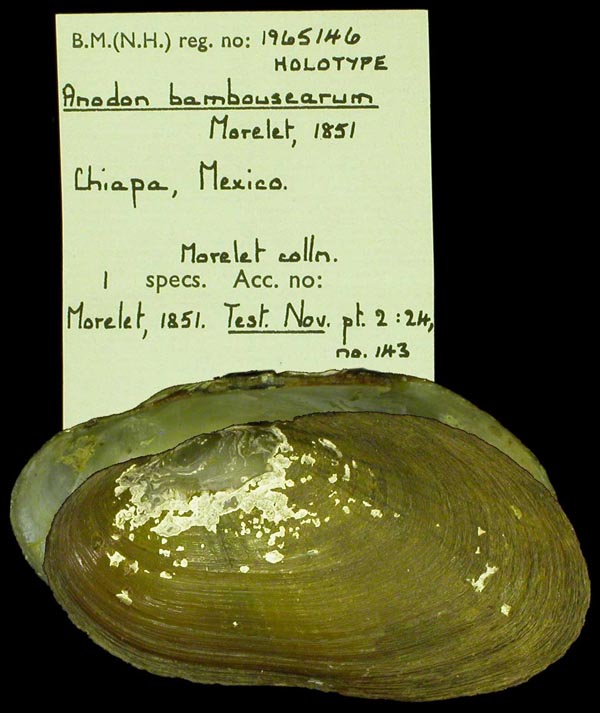 B.M.(N.H.) reg. no: 1965146
HOLOTYPE
Anodon bambousearum
Morelet, 1851
Chiapa, Mexico.
Morelet colln.
1 specs. Acc. no:
Morelet, 1851. Test. Nov. pt. 2:24,
no. 143